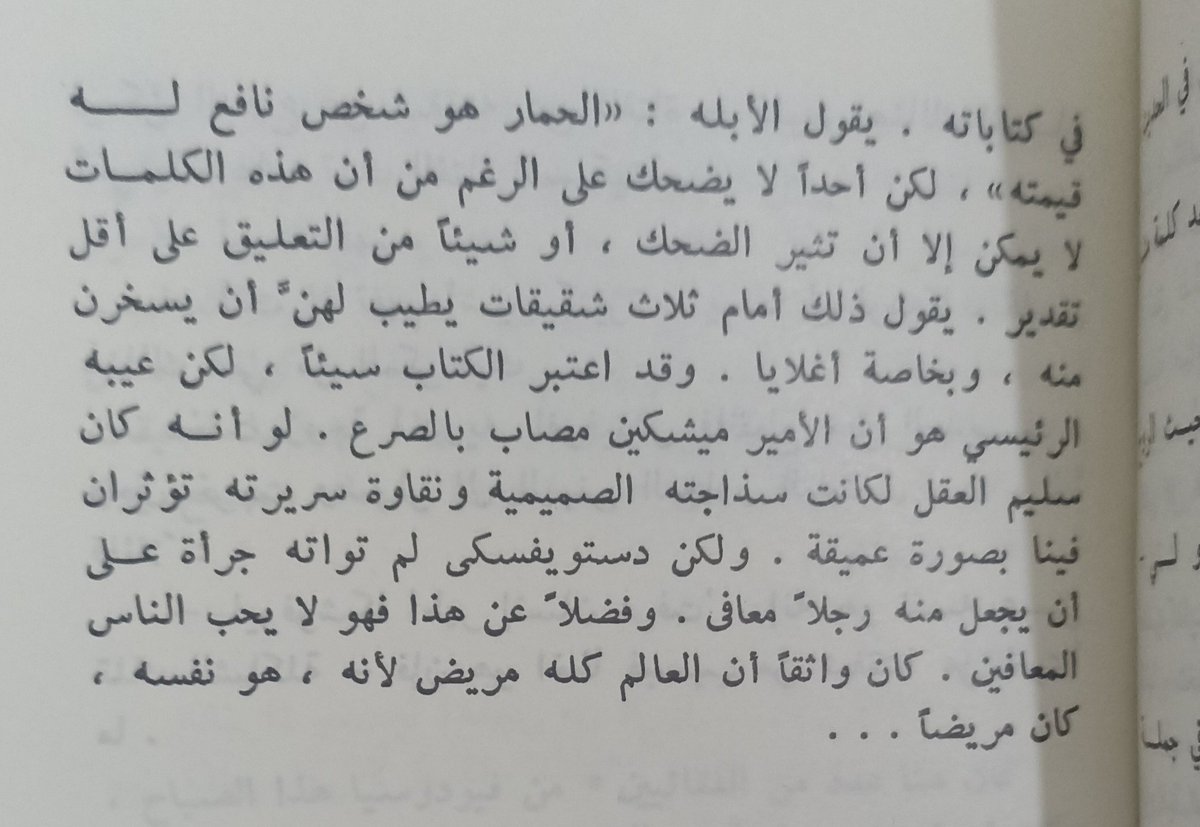 في كتاباته . يقول الأبله : «الحمار هو شخص نافع لـــه
قيمته» ، لكن أحداً لا يضحك على الرغم من أن هذه الكلمـات
لا يمكن إلا أن تثير الضحك ، أو شيئاً من التعليق على أقل
تقدير . يقول ذلك أمام ثلاث شقيقات يطيب لهنَّ أن يسخرن
منه ، وبخاصة أغلايا . وقد اعتبر الكتاب سيئاً ، لكن عيبه
الرئيسي هو أن الأمير ميشكين مصاب بالصرع . لو أنـه كان
سليم العقل لكانت سذاجته الصميمية ونقاوة سريرته تؤثران
فينا بصورة عميقة . ولكن دستويفسكى لم تواته جرأة عـلى
أن يجعل منه رجلاً معافى . وفضلاً عن هذا فهو لا يحب الناس
المعافين . كان واثقاً أن العالم كله مريض لأنه ، هو نفسه ،
كان مريضاً . . .